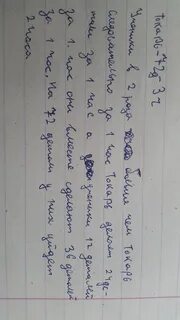 Токарь-72д 3ч
Ученики в 2 раза больше чем токарь
следовательно за 1 час токарь делает 24 де-
тали за 1 час а ученики 12 деталей
за 1. час они вместе сделают 36 деталей
за 1 час. На 72 детали у них уйдет
2 часа